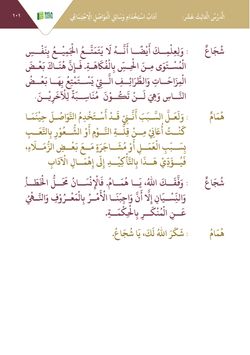 الدَّرْسُ الثَّالِثَ عَشَرَ: آدَابُ اسْتِخْدَامِ وَسَائِلِ التَّوَاصُلِ الِاجْتِمَاعِيِّ
١٠٦
شُجَاعٌ : وَلِعِلْمِكَ أَيْضًا أَنَّهُ لَا يَتَمَتَّعُ الْجَمِيعُ بِنَفْسِ
الْمُسْتَوَى مِنَ الْحِسِّ بِالْفُكَاهَةِ. فَإِنَّ هُنَاكَ بَعْضَ
الْمِزَاحَاتِ وَالطَّرَائِفِ الَّتِي يَسْتَمْتِعُ بِهَا بَعْضُ
النَّاسِ وَهِيَ لَنْ تَكُونَ مُنَاسِبَةً لِلْآخَرِينَ.
هُمَامٌ : وَلَعَلَّ السَّبَبَ أَنَّنِي قَدْ أَسْتَخْدِمُ التَّوَاصُلَ حِينَمَا
كُنْتُ أُعَانِي مِنْ قِلَّةِ النَّوْمِ أَوِ الشُّعُورِ بِالتَّعَبِ
بِسَبَبِ الْعَمَلِ أَوْ مُشَاجَرَةٍ مَعَ بَعْضِ الزُّمَلَاءِ،
فَيُؤَدِّي هَذَا بِالتَّأْكِيدِ إِلَى إِهْمَالِ الْآدَابِ
شُجَاعٌ : وَفَّقَكَ اللهُ، يَا هُمَامُ. فَالْإِنْسَانُ مَحَلُّ الْخَطَأِ
وَالنِّسْيَانِ إِلَّا أَنَّ وَاجِبَنَا الْأَمْرُ بِالْمَعْرُوفِ وَالنَّهْيُ
عَنِ الْمُنْكَرِ بِالْحِكْمَةِ.
هُمَامٌ : شَكَرَ اللهُ لَكَ، يَا شُجَاعُ.